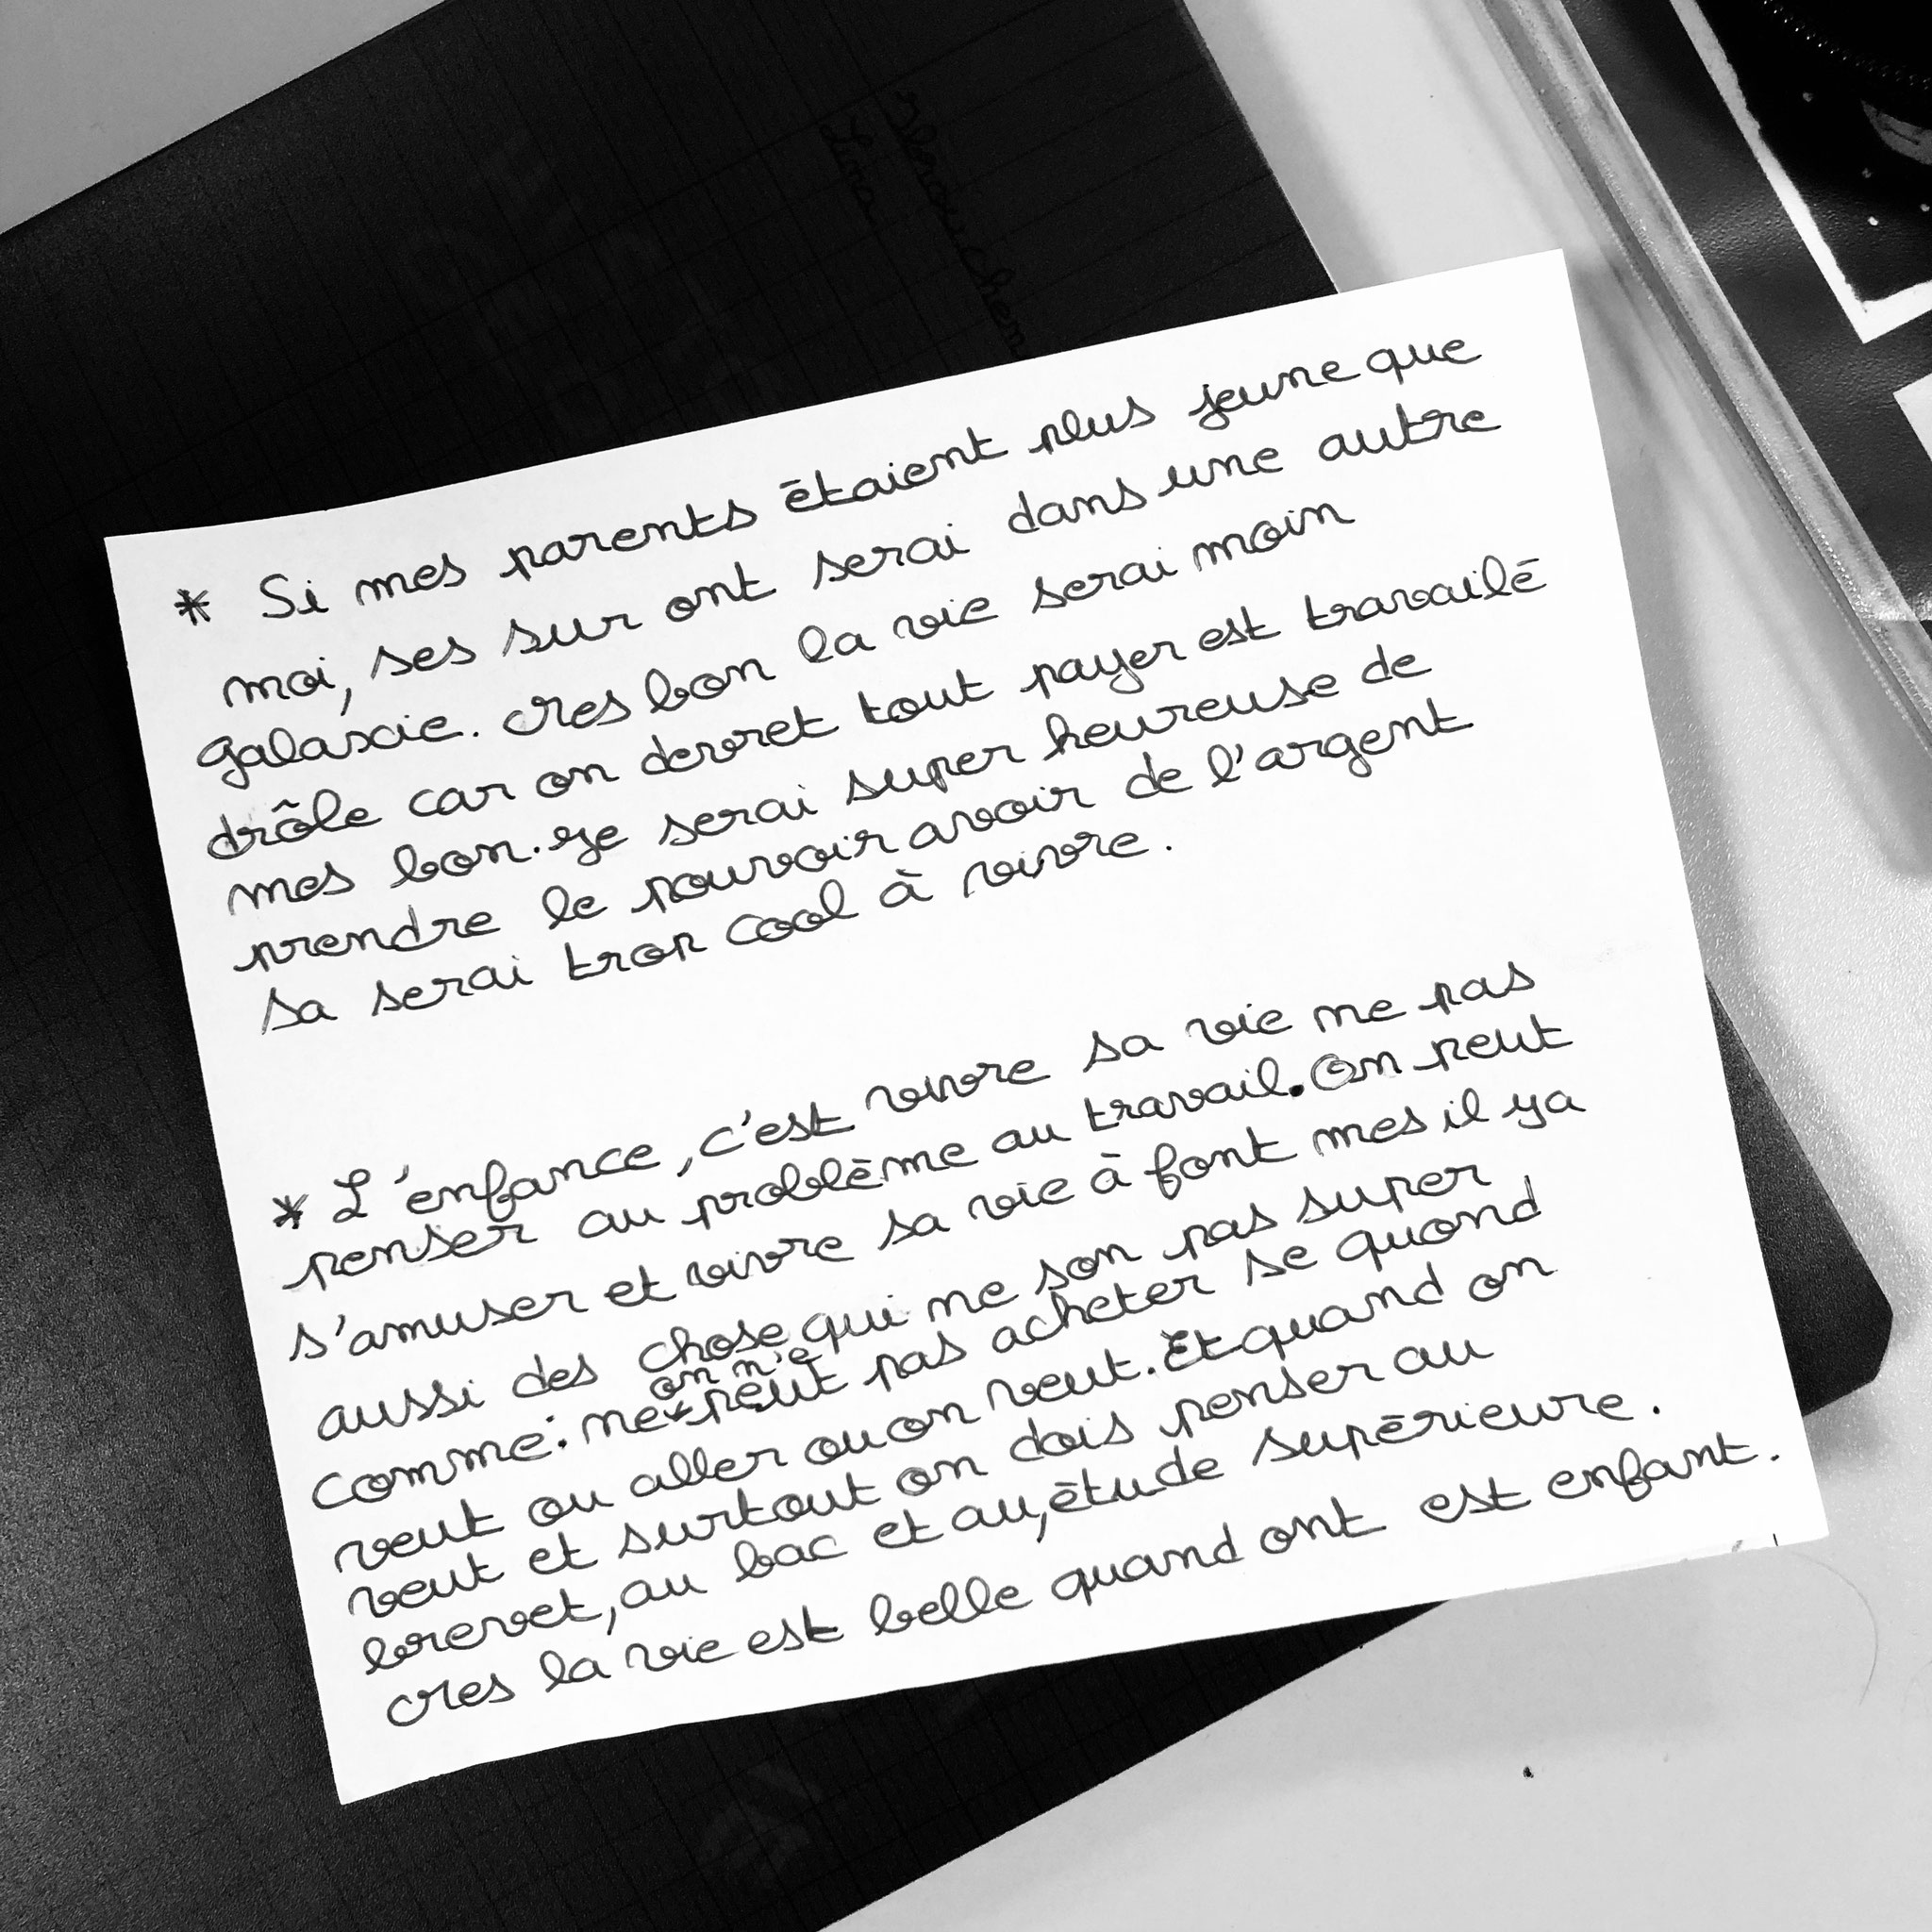 * Si mes parents étaient plus jeune que
moi, ses sur ont serai dans une autre
galaxie. Mes bon la vie serai moin
drôle car on devret tout payer est travailé
mes bon. Je serai super heureuse de
prendre le pouvoir avoir de l'argent
sa serai trop cool à vivre.
* L'enfance, c'est vivre sa vie ne pas
penser au problème au travail. On peut
s'amuser et vivre sa vie à font mes il ya
aussi des chose qui ne son pas super
on n'e
comme: ne peut pas acheter se quond
veut ou aller ou on veut. Et quand on
veut et surtout on dois penser au
brevet, au bac et au, étude supérieure.
Mes la vie est belle quand ont est enfant.